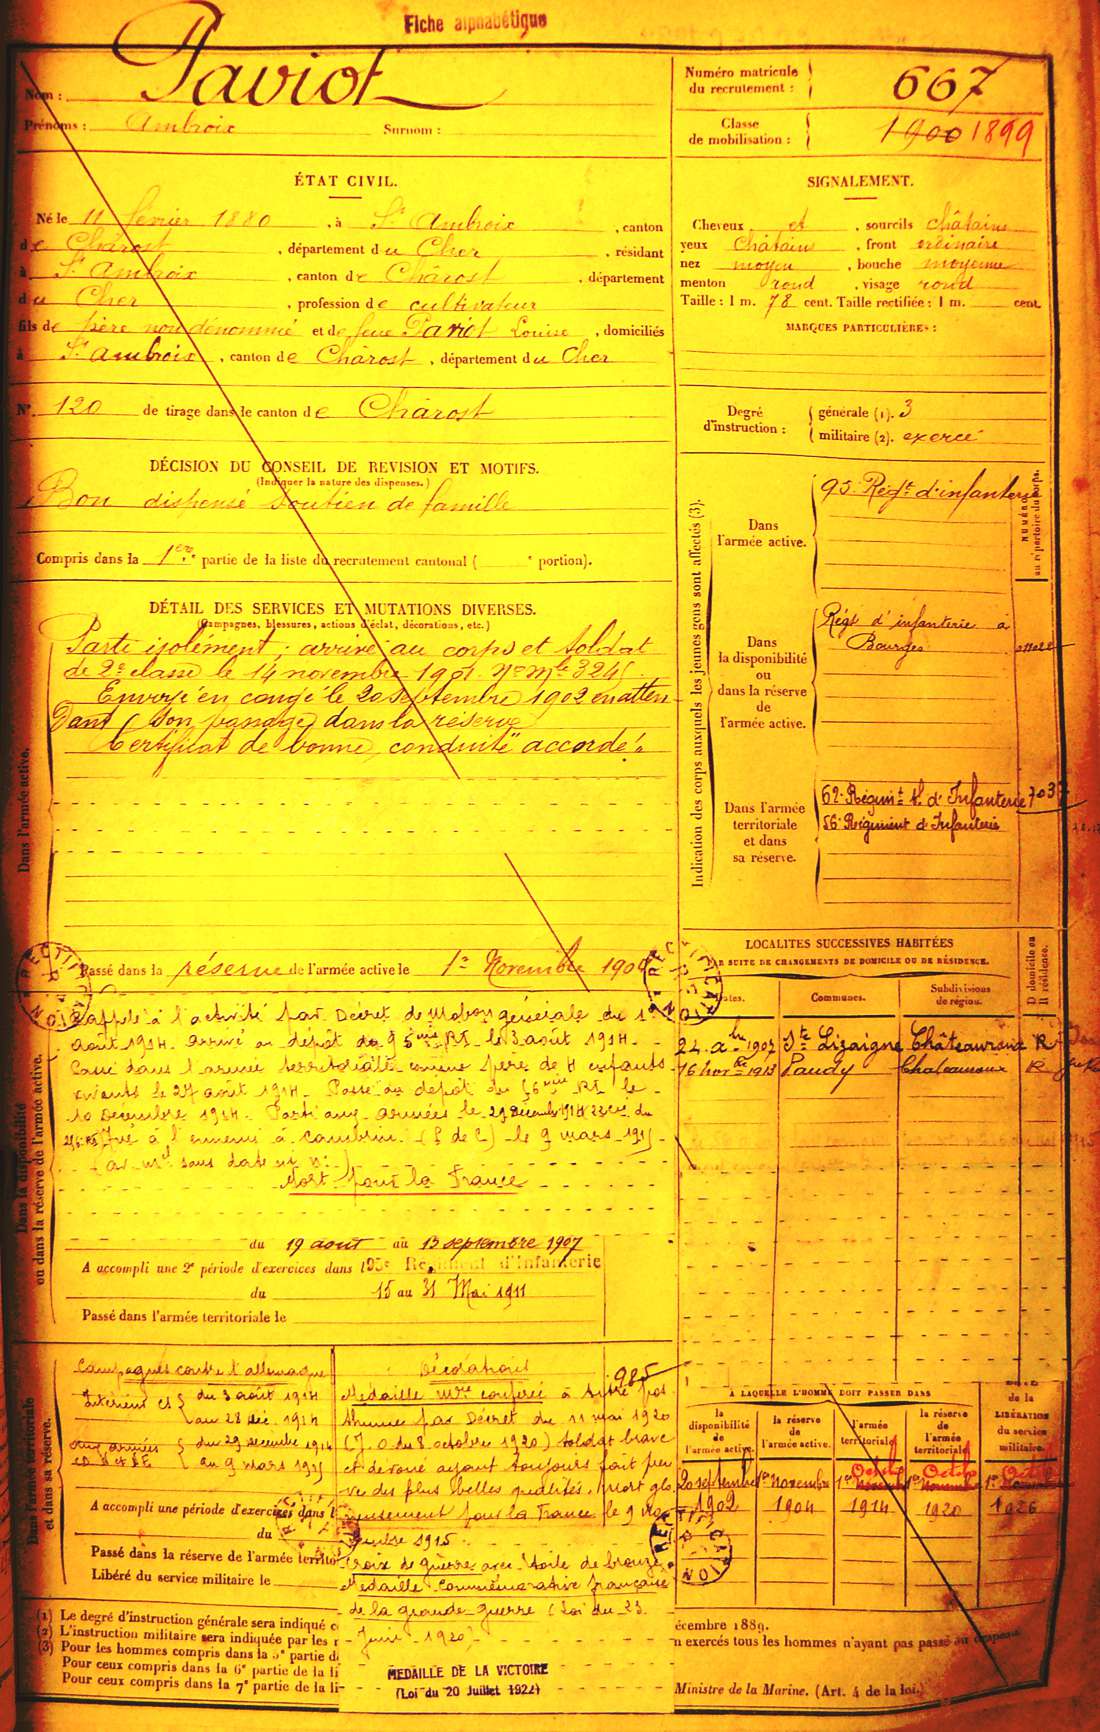 Fiche alphabétique
Nom : Paviot
Prénoms : Ambroix Surnom :
Numéro matricule du recrutement : 667
Classe de mobilisation : 1900 1899
ÉTAT CIVIL.
Né le 11 février 1880, à St Ambroix, canton
de Chârost, département du Cher, résidant
à St Ambroix, canton de Chârost, département
du Cher, profession de cultivateur
fils de père non dénommé et de feue Paviot Louise, domiciliés
à St Ambroix, canton de Chârost, département du Cher
N° 120 de tirage dans le canton de Chârost
SIGNALEMENT.
Cheveux et, sourcils châtains
yeux châtains, front ordinaire
nez moyen, bouche moyenne
menton rond, visage rond
Taille : 1 m. 78 cent. Taille rectifiée : 1 m. cent.
MARQUES PARTICULIÈRES :
Degré d'instruction : générale (1). 3
militaire (2). exercé
DÉCISION DU CONSEIL DE REVISION ET MOTIFS.
(Indiquer la nature des dispenses.)
Bon dispensé soutien de famille
Compris dans la 1ere partie de la liste du recrutement cantonal ( portion).
DÉTAIL DES SERVICES ET MUTATIONS DIVERSES.
(Campagnes, blessures, actions d'éclat, décorations, etc.)
Dans l'armée active.
Parti isolément ; arrivé au corps et soldat
de 2e classe le 14 novembre 1901. No Mle 3245
Envoyé en congé le 20 septembre 1902 en atten
dant son passage dans la réserve
Certificat de bonne conduite "accordé"
Passé dans la réserve de l'armée active le 1er Novembre 1904
RECTIFICATION
Dans la disponibilité
ou dans la réserve de l'armée active.
Rappelé à l'activité par Décret de Mobon générale du 1
août 1914. Arrivé au dépôt du 95ème RI le 3 août 1914.
Passé dans l'armée territoriale comme père de 4 enfants
vivants le 27 août 1914. Passé au dépôt du 56ème RI le
10 Décembre 1914. Parti aux armées le 29 Décembre 1914 23e Cie du
256 RI Tué à l'ennemi à Cambrin (P de C) le 9 mars 1915
Mort pour la France
du 19 aout au 13 septembre 1907
A accompli une 2e période d'exercices dans Régiment d'Infanterie
du 15 au 31 Mai 1911
Passé dans l'armée territoriale le
Dans l'armée territoriale
et dans sa réserve.
Campagnes contre l'allemagne
Intérieur CS du 3 août 1914
au 28 déc. 1914
aux armées du 29 décembre 1914
au 9 mars 1915
A accompli une période d'exercices dans l
du
Passé dans la réserve de l'armée territo
Libéré du service militaire le
Décorations
985
Médaille mre conférée à titre pos
thume par Décret du 11 mai 1920
(J.O du 8 octobre 1920) Soldat brave
et dévoué ayant toujours fait preu
ve des plus belles qualités. Mort glo
rieusement pour la France le 9
1915
Croix de guerre avec étoile de bronze
Médaille Commémorative française
de la grande guerre (Loi du 23
Juin 1920)
MEDAILLE DE LA VICTOIRE
(Loi du 20 Juillet 1922)
Indication des corps auxquels les jeunes gens sont affectés (3).
NUMÉRO au répertoire du corps.
Dans l'armée active.
95. Régt d'infanterie
Dans la disponibilité ou dans la réserve de l'armée active.
Régt d'infanterie à
Bourges
Dans l'armée territoriale et dans sa réserve.
62e Régimt t. d'Infanterie 7037
56e Régiment d'Infanterie
LOCALITÉS SUCCESSIVES HABITÉES
R SUITE DE CHANGEMENTS DE DOMICILE OU DE RÉSIDENCE.
ates. Communes. Subdivisions de région. D domicile ou R résidence.
1907 Ste Lizaigne Châteauroux R
16 novbre 1913 Paudy Chateauroux R
A LAQUELLE L'HOMME DOIT PASSER DANS
la disponibilité de l'armée active. la réserve de l'armée active. l'armée territoriale la réserve de l'armée territoriale de la LIBÉRATION du service militaire.
Octobre Octobre Octobre
20 septembre 1er novembre 1er Novembre 1er Novembre 1er
1902 1904 1914 1920 1926
RECTIFICATION
(1) Le degré d'instruction générale sera indiqué c
(2) L'instruction militaire sera indiquée par les
(3) Pour les hommes compris dans la 5e partie d
Pour ceux compris dans la 6e partie de la li
Pour ceux compris dans la 7e partie de la li
écembre 1889.
n exercés tous les hommes n'ayant pas passé au drapeau
Ministre de la Marine. (Art. 4 de la loi.)